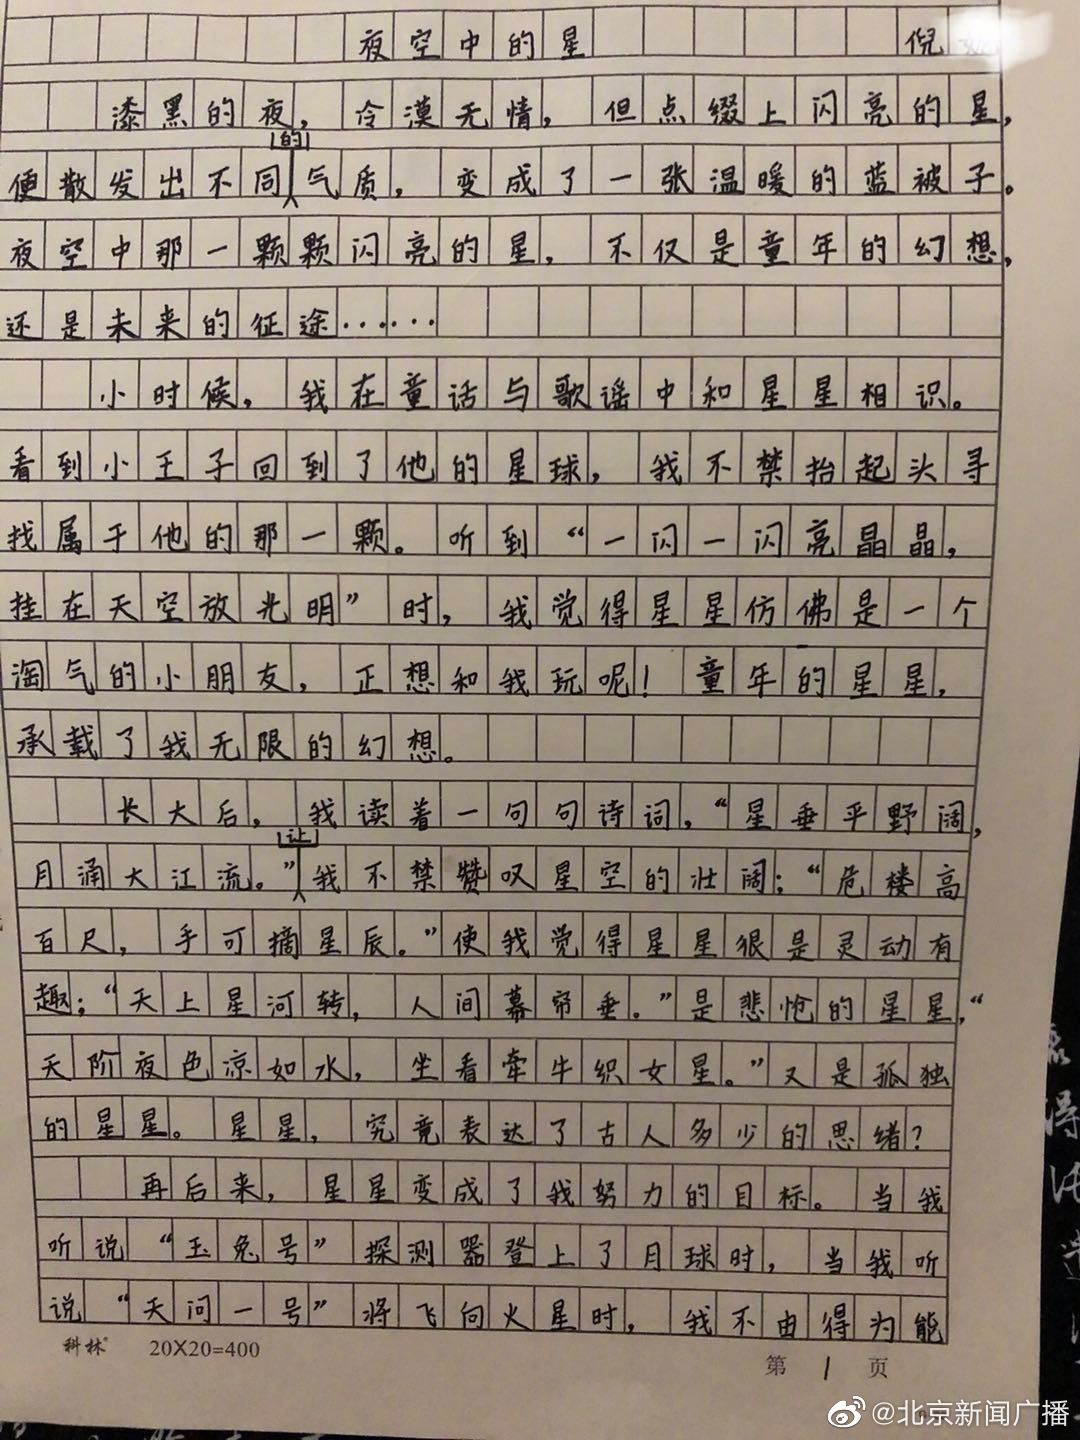 夜空中的星 倪
漆黑的夜，冷漠无情，但点缀上闪亮的星，
便散发出不同的气质，变成了一张温暖的蓝被子。
夜空中那一颗颗闪亮的星，不仅是童年的幻想，
还是未来的征途……
小时候，我在童话与歌谣中和星星相识。
看到小王子回到了他的星球，我不禁抬起头寻
找属于他的那一颗。听到“一闪一闪亮晶晶，
挂在天空放光明”时，我觉得星星仿佛是一个
淘气的小朋友，正想和我玩呢！童年的星星，
承载了我无限的幻想。
长大后，我读着一句句诗词，“星垂平野阔，
月涌大江流。”让我不禁赞叹星空的壮阔；“危楼高
百尺，手可摘星辰。”使我觉得星星很是灵动有
趣；“天上星河转，人间幕帘垂。”是悲怆的星星，“
天阶夜色凉如水，坐看牵牛织女星。”又是孤独
的星星。星星，究竟表达了古人多少的思绪？
再后来，星星变成了我努力的目标。当我
听说“玉兔号”探测器登上了月球时，当我听
说“天问一号”将飞向火星时，我不由得为能
科林 20X20=400
第 1 页
@北京新闻广播